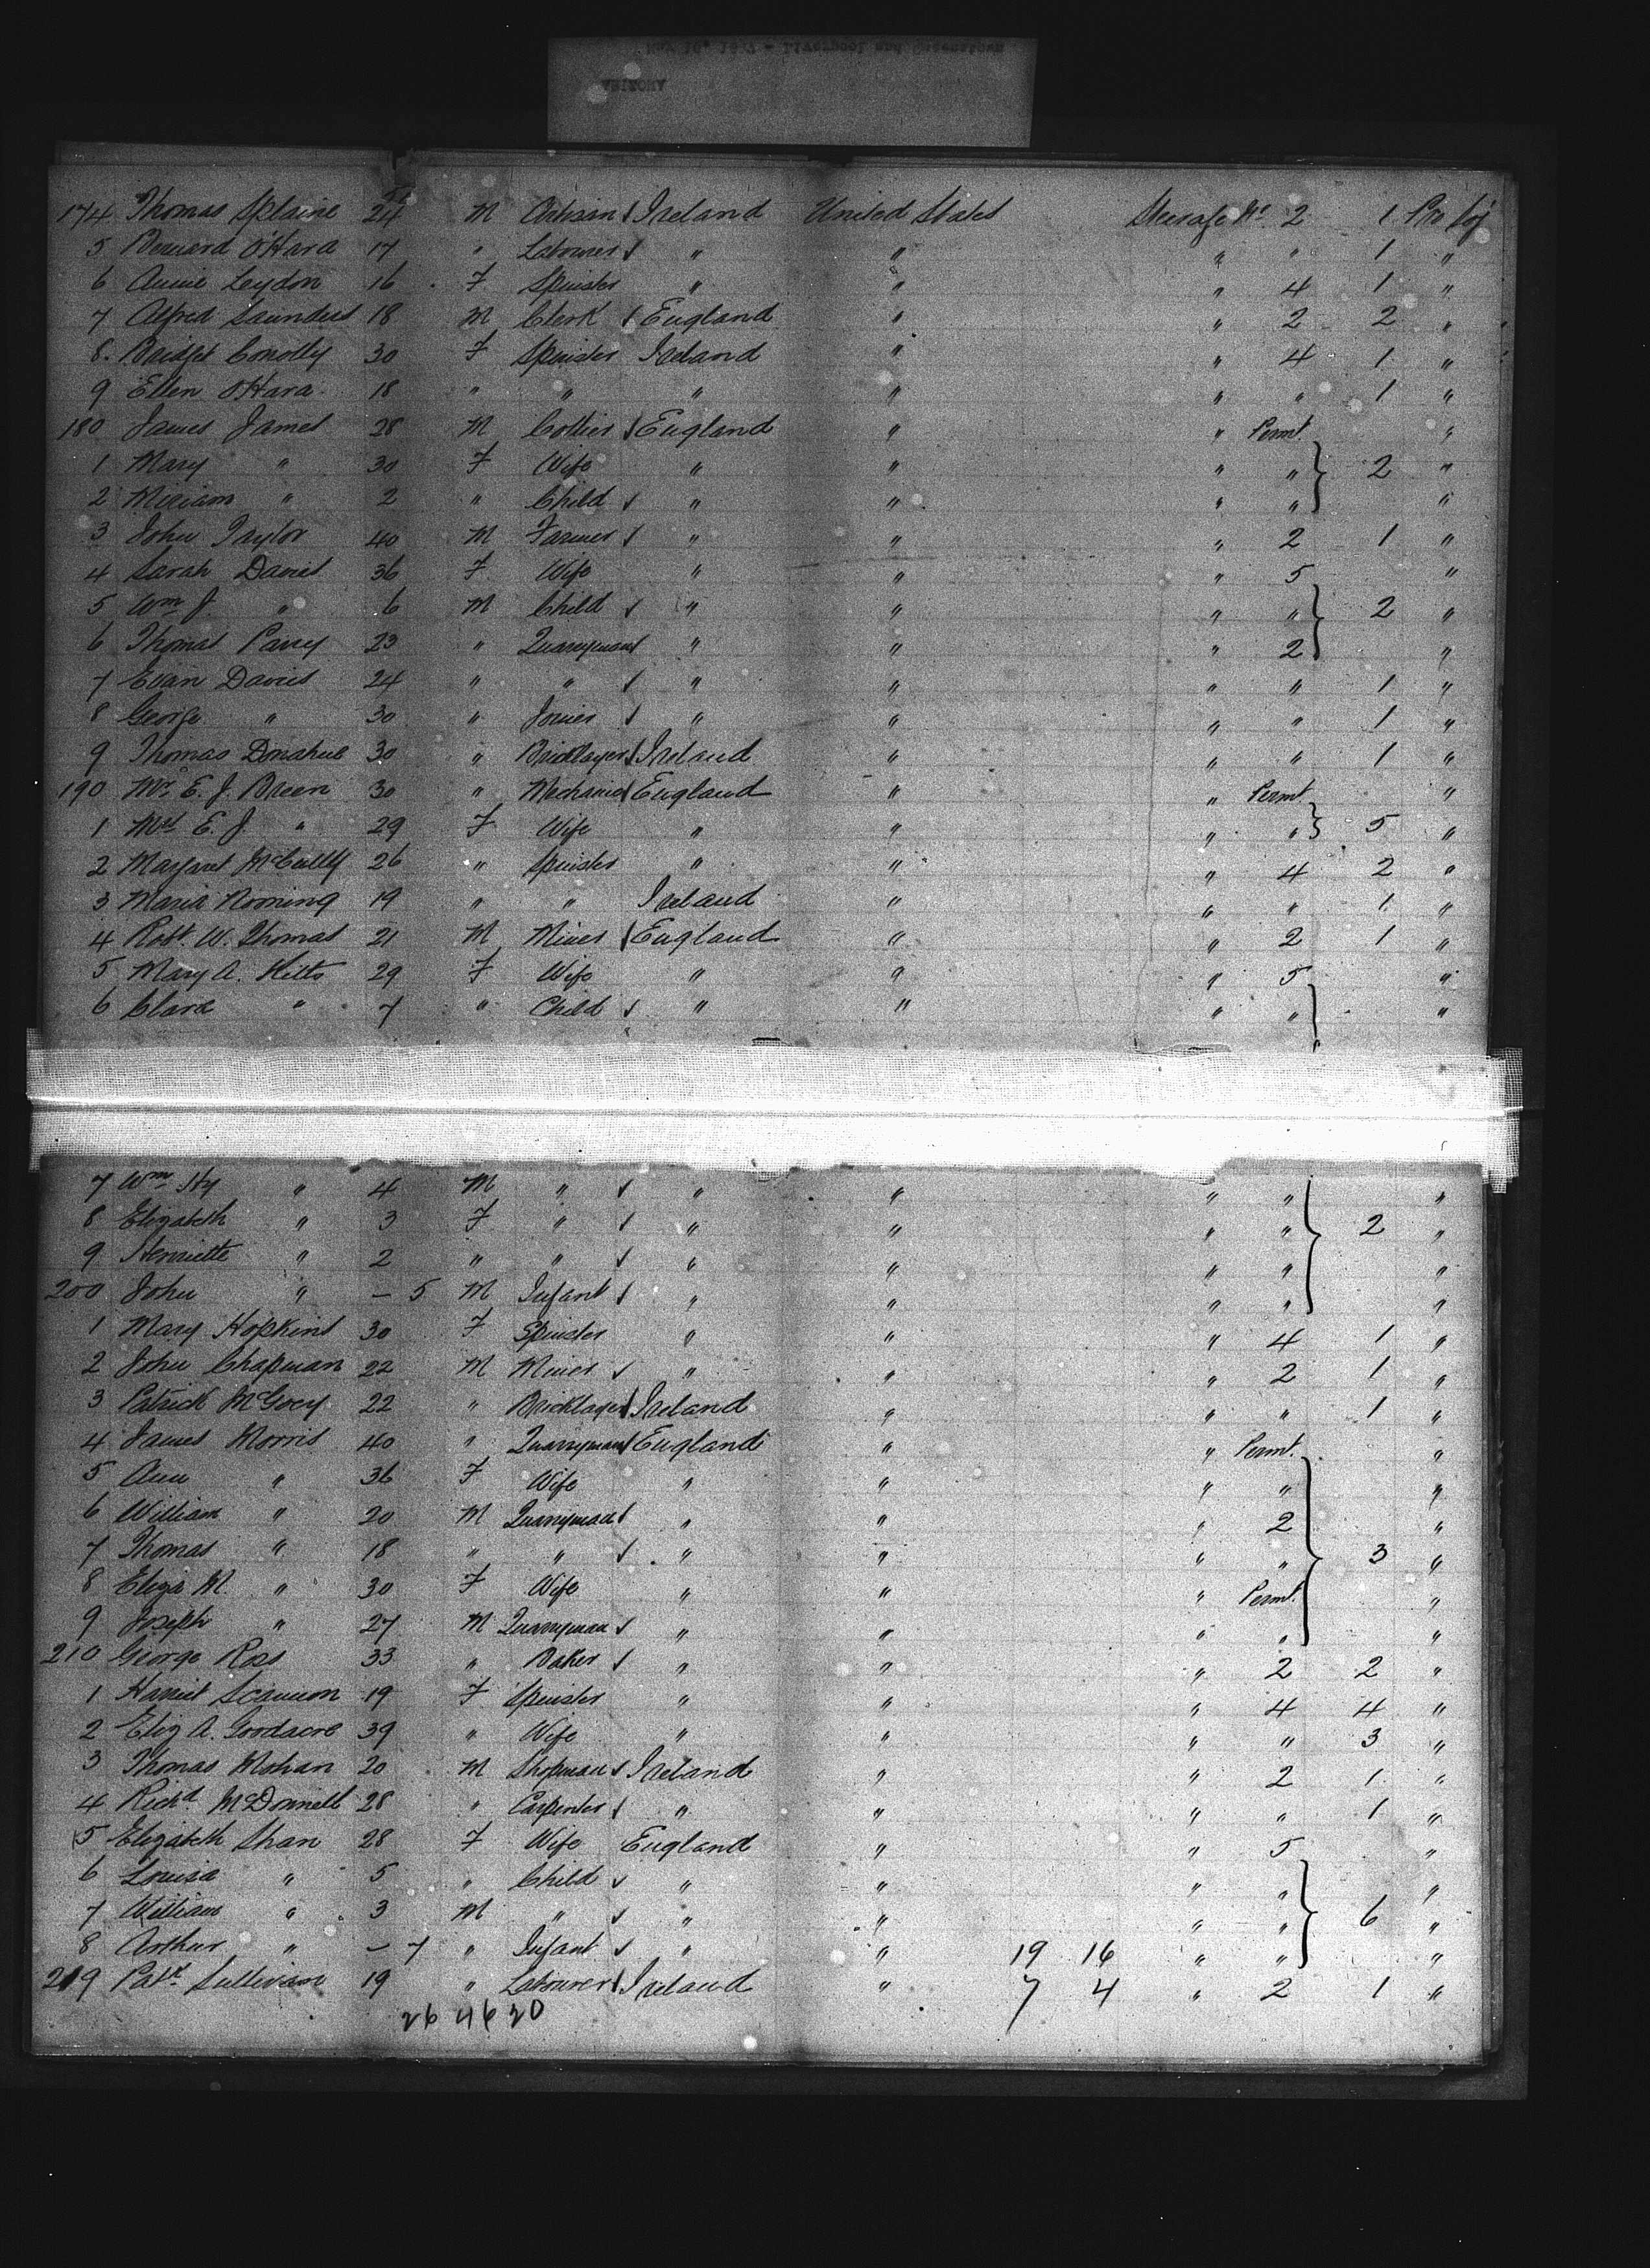 174 Thomas Splaine 24 M Artisan Ireland United States Steerage No 2 1
5 Bernard O'Hara 17 " Labourer " " " " 1 "
6 Annie Leydon 16 F Spinster " " " 4 1 "
7 Alfred Saunders 18 M Clerk England " " 2 2 "
8 Bridget Conolly 30 F Spinster Ireland " " 4 1 "
9 Ellen O'Hara 18 " " " " " " 1 "
180 James James 28 M Collier England " " Permt. "
1 Mary " 30 F Wife " " " " 2 "
2 Miriam " 2 " Child " " " " "
3 John Taylor 40 M Farmer " " " 2 1 "
4 Sarah Davies 36 F Wife " " " 5 "
5 Wm J. " 6 M Child " " " " 2 "
6 Thomas Parry 23 " Quarryman " " " 2 "
7 Evan Davies 24 " " " " " " 1 "
8 George " 30 " Joiner " " " " 1 "
9 Thomas Donahue 30 " Bricklayer Ireland " " " 1 "
190 Mr. E. J. Breen 30 " Mechanic England " " Permt "
1 Mrs E. J. " 29 F Wife " " " " 5 "
2 Margaret McCully 26 " Spinster " " " 4 2 "
3 Maria 19 " " Ireland " " " 1 "
4 Robt. W. Thomas 21 M Miner England " " 2 1 "
5 Mary A. Hitts 29 F Wife " " " 5 "
6 Clara " 7 " Child " " " " "
7 Wm Hy " 4 M " " " " " "
8 Elizabeth " 3 F " " " " " 2 "
9 Henriette " 2 " " " " " " "
200 John " - 5 M Infant " " " " "
1 Mary Hopkins 30 F Spinster " " " 4 1 "
2 John Chapman 22 M Miner " " " 2 1 "
3 Patrick McGoey 22 " Bricklayer Ireland " " " 1 "
4 James Morris 40 " Quarryman England " " Permt. "
5 Ann " 36 F Wife " " " " "
6 William " 20 M Quarryman " " " 2 "
7 Thomas " 18 " " " " " " 3 "
8 Eliza M. " 30 F Wife " " " Permt. "
9 Joseph " 27 M Quarryman " " " " "
210 George Ross 33 " Baker " " " 2 2 "
1 Harriet Scammon 19 F Spinster " " " 4 4 "
2 Eliz A. Goodacre 39 " Wife " " " " 3 "
3 Thomas Mohan 20 M Shopman Ireland " " 2 1 "
4 Richd. McDonnell 28 " Carpenter " " " " 1 "
5 Elizabeth Shan 28 F Wife England " " 5 "
6 Louisa " 5 " Child " " " " "
7 William " 3 M " " " " " 6 "
8 Arthur " - 7 " Infant " " 19 16 " " "
219 Patk. Sullivan 19 " Labourer Ireland " 7 4 " 2 1 "
26 46 20